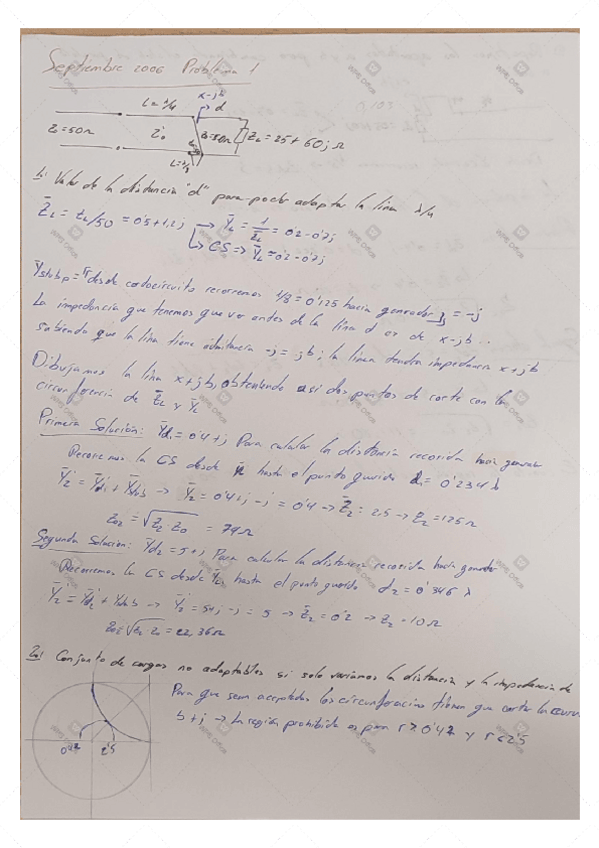 Septiembre 2006 Problema 1
x-jb
L = λ/4
d
Z0=50Ω
Z0'
Z0=50Ω
ZL = 25 + 60j Ω
L=λ/8
1: Valor de la distancia "d" para poder adaptar la línea λ/4
Z̄L = ZL/50 = 0'5+1,2j → ȲL = 1/Z̄L = 0'2-0'7j
↳ CS => ȲL = 0'2-0'7j
Ȳstub p = desde cortocircuito recorremos 1/8 = 0'125 hacia generador = -j
La impedancia que tenemos que ver antes de la línea d es de x-jb ..
sabiendo que la línea tiene admitancia -j = jb; la línea tendra impedancia x+jb
Dibujamos la línea x+jb, obteniendo asi dos puntos de corte con la
circunferencia de Z̄L y ȲL
Primera Solución: Ȳd1 = 0'4+j Para calcular la distancia recorrida hacia generador
Recorremos la CS desde hasta el punto querido d1 = 0'234 λ
Ȳ2' = Ȳd1 + Ȳstub → Ȳ2 = 0'4+j-j = 0'4 → Z̄2 = 2,5 → Z2 = 125Ω
Z02 = √Z2 Z0 = 79Ω
Segunda Solución: Ȳd2 = 5+j Para calcular la distancia recorrida hacia generador
Recorremos la CS desde ȲL hasta el punto querido d2 = 0'346 λ
Ȳ2' = Ȳd2 + Ȳstub → Ȳ2' = 5+j-j = 5 → Z̄2 = 0'2 → Z2 = 10Ω
Z02 = √Z2 · Z0 = 22,36Ω
2o: Conjunto de cargas no adaptables si solo variamos la distancia y la impedancia de
Para que sean aceptadas las circunferencias tienen que cortar la curva
b+j → La región prohibida es para r≥0'42 y r≤2'5
0'42
2'5